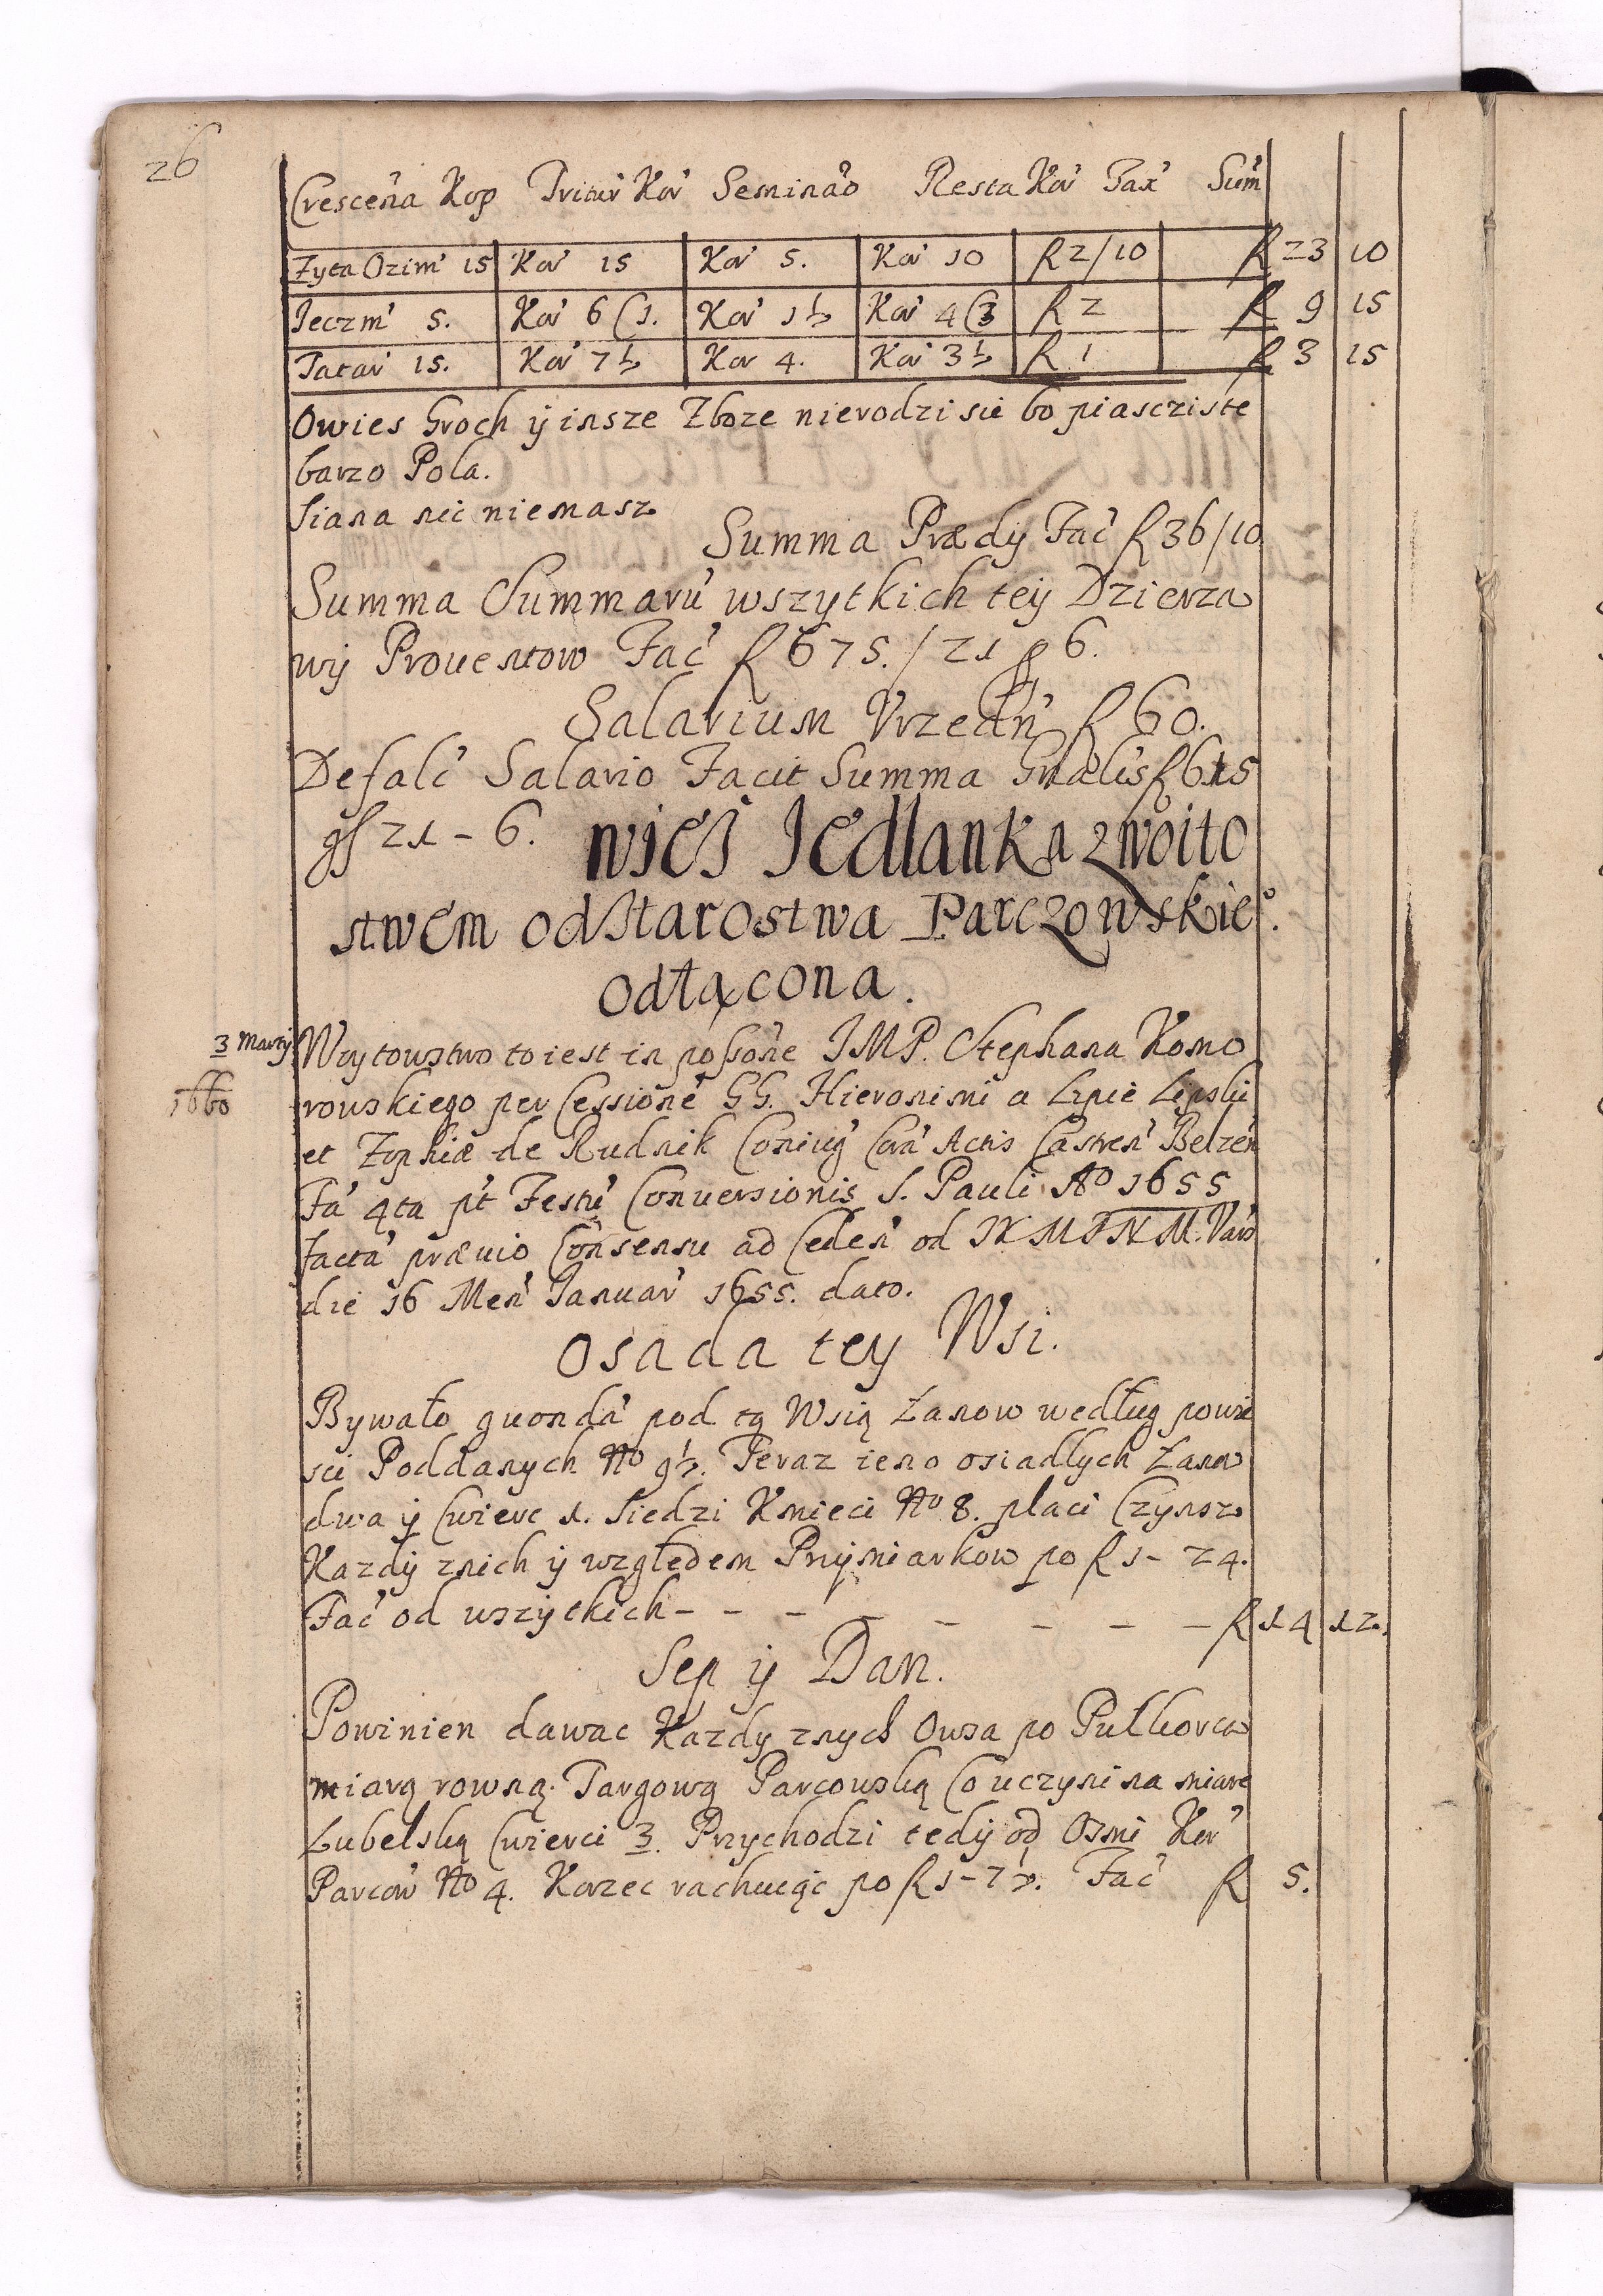 26
Crescen̄a Kop Tritur̄ Kor̄ Semināo Resta Kor̄ Tax̄ Sum̄
Zyta Ozim̄ 15 Kor̄ 15 Kor̄ 5. Kor̄ 10 fl 2/10 fl 23 10
Jeczm̄ 5. Kor̄ 6 C1. Kor̄ 1½ Kor̄ 4 C3 fl 2 fl 9 15
Tatar̄ 15. Kor̄ 7½ Kor 4. Kor̄ 3½ fl 1 fl 3 15
Owies Groch ÿ insze Zboze nierodzi sie bo piascziste
barzo Pola.
Siana nic niemasz
Summa Prædÿ Fac̄ fl 36/10
Summa Summarū wszytkich teÿ Dzierza
wÿ Prouentow Fac̄ fl 675./21 ꝭ 6.
Salarium Vrzedn̄ fl 60.
Defalc̄ Salario Facit Summa Gn̄alis fl 615
gſ 21 - 6. wieś Jedlanka zwoito
stwem od Starostwa Parczowskie°.
odłącona.
3 Martÿ Woytowstwo to iest in poſsōne JMP. Stephana Komo
1660 rowskiego per Cessionē GG. Hieronimi a Lipie Lipski
et Zophiæ de Rudnik Coniuḡ Corā Actis Castren̄ Belzen̄
Fā 4ta p̄t Festū Conuersionis S. Pauli Aº 1655
factā præuio Consensu ad Ceden̄ od JKMPNM. Vars
die 16 Men̄ Januar̄ 1655. dato.
Osada tey Wsi.
Bywało quondā pod tą Wsią Łanow według powie
sci Poddanych Nº 9½. Teraz ieno osiadłych Łanow
dwa ÿ Cwierc 1. Siedzi Kmieci Nº 8. płaci Czynsz
Kazdÿ znich ÿ względem Prÿmiarkow po fl 1- 24.
Fac̄ od wszÿtkich - - - - - - - - fl 14 12.
Sep ÿ Dan.
Powinien dawac Kazdy znych Owsa po Puł korca
miarą rowną. Targową Parcowską Co uczyni na miarę
Lubelską Cwierci 3. Przychodzi tedÿ od Osmi Kor̄
Parcow̄ Nº 4. Korzec rachuiąc po fl 1-7½. Fac̄ fl 5.